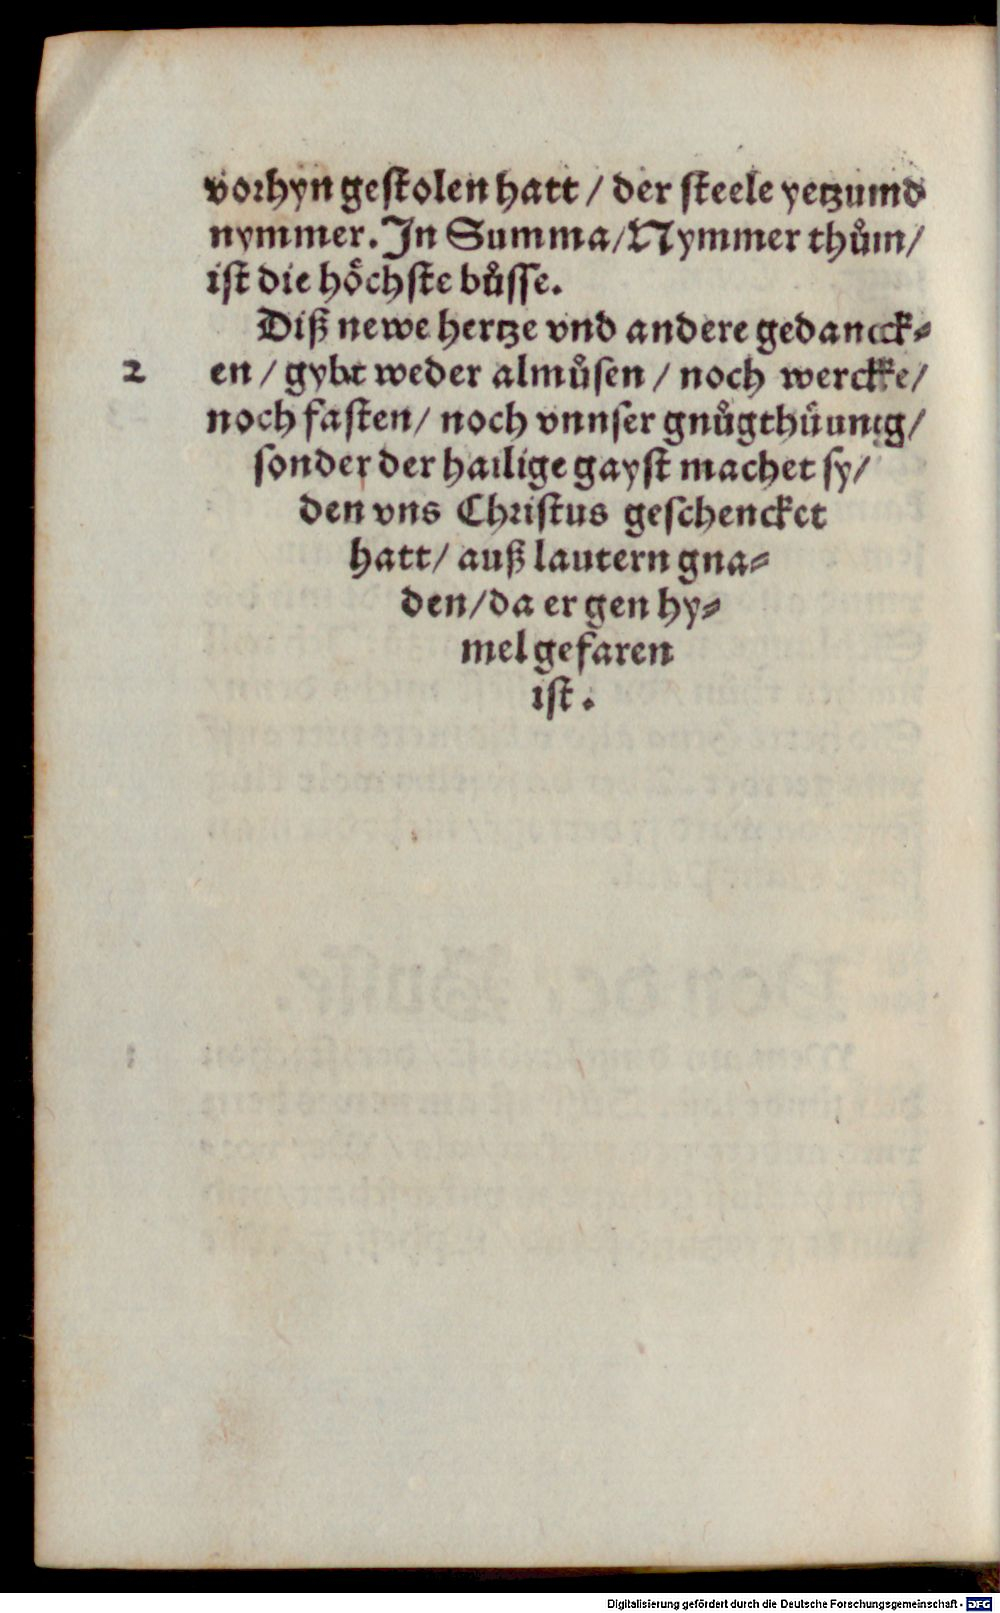 vorhyn gestolen hatt / der steele yetzumd
nymmer. In Summa/ Nymmer thům/
ist die höchste bůsse.
Diß newe hertze vnd andere gedancck⸗
2 en / gybt weder almůsen / noch werckke/
noch fasten/ noch vnnser gnůgthůung/
sonder der hailige gayst machet sy/
den vns Christus geschencket
hatt/ auß lautern gna⸗
den/ da er gen hy⸗
mel gefaren
ist.
Digitalisierung gefördert durch die Deutsche Forschungsgemeinschaft - DFG